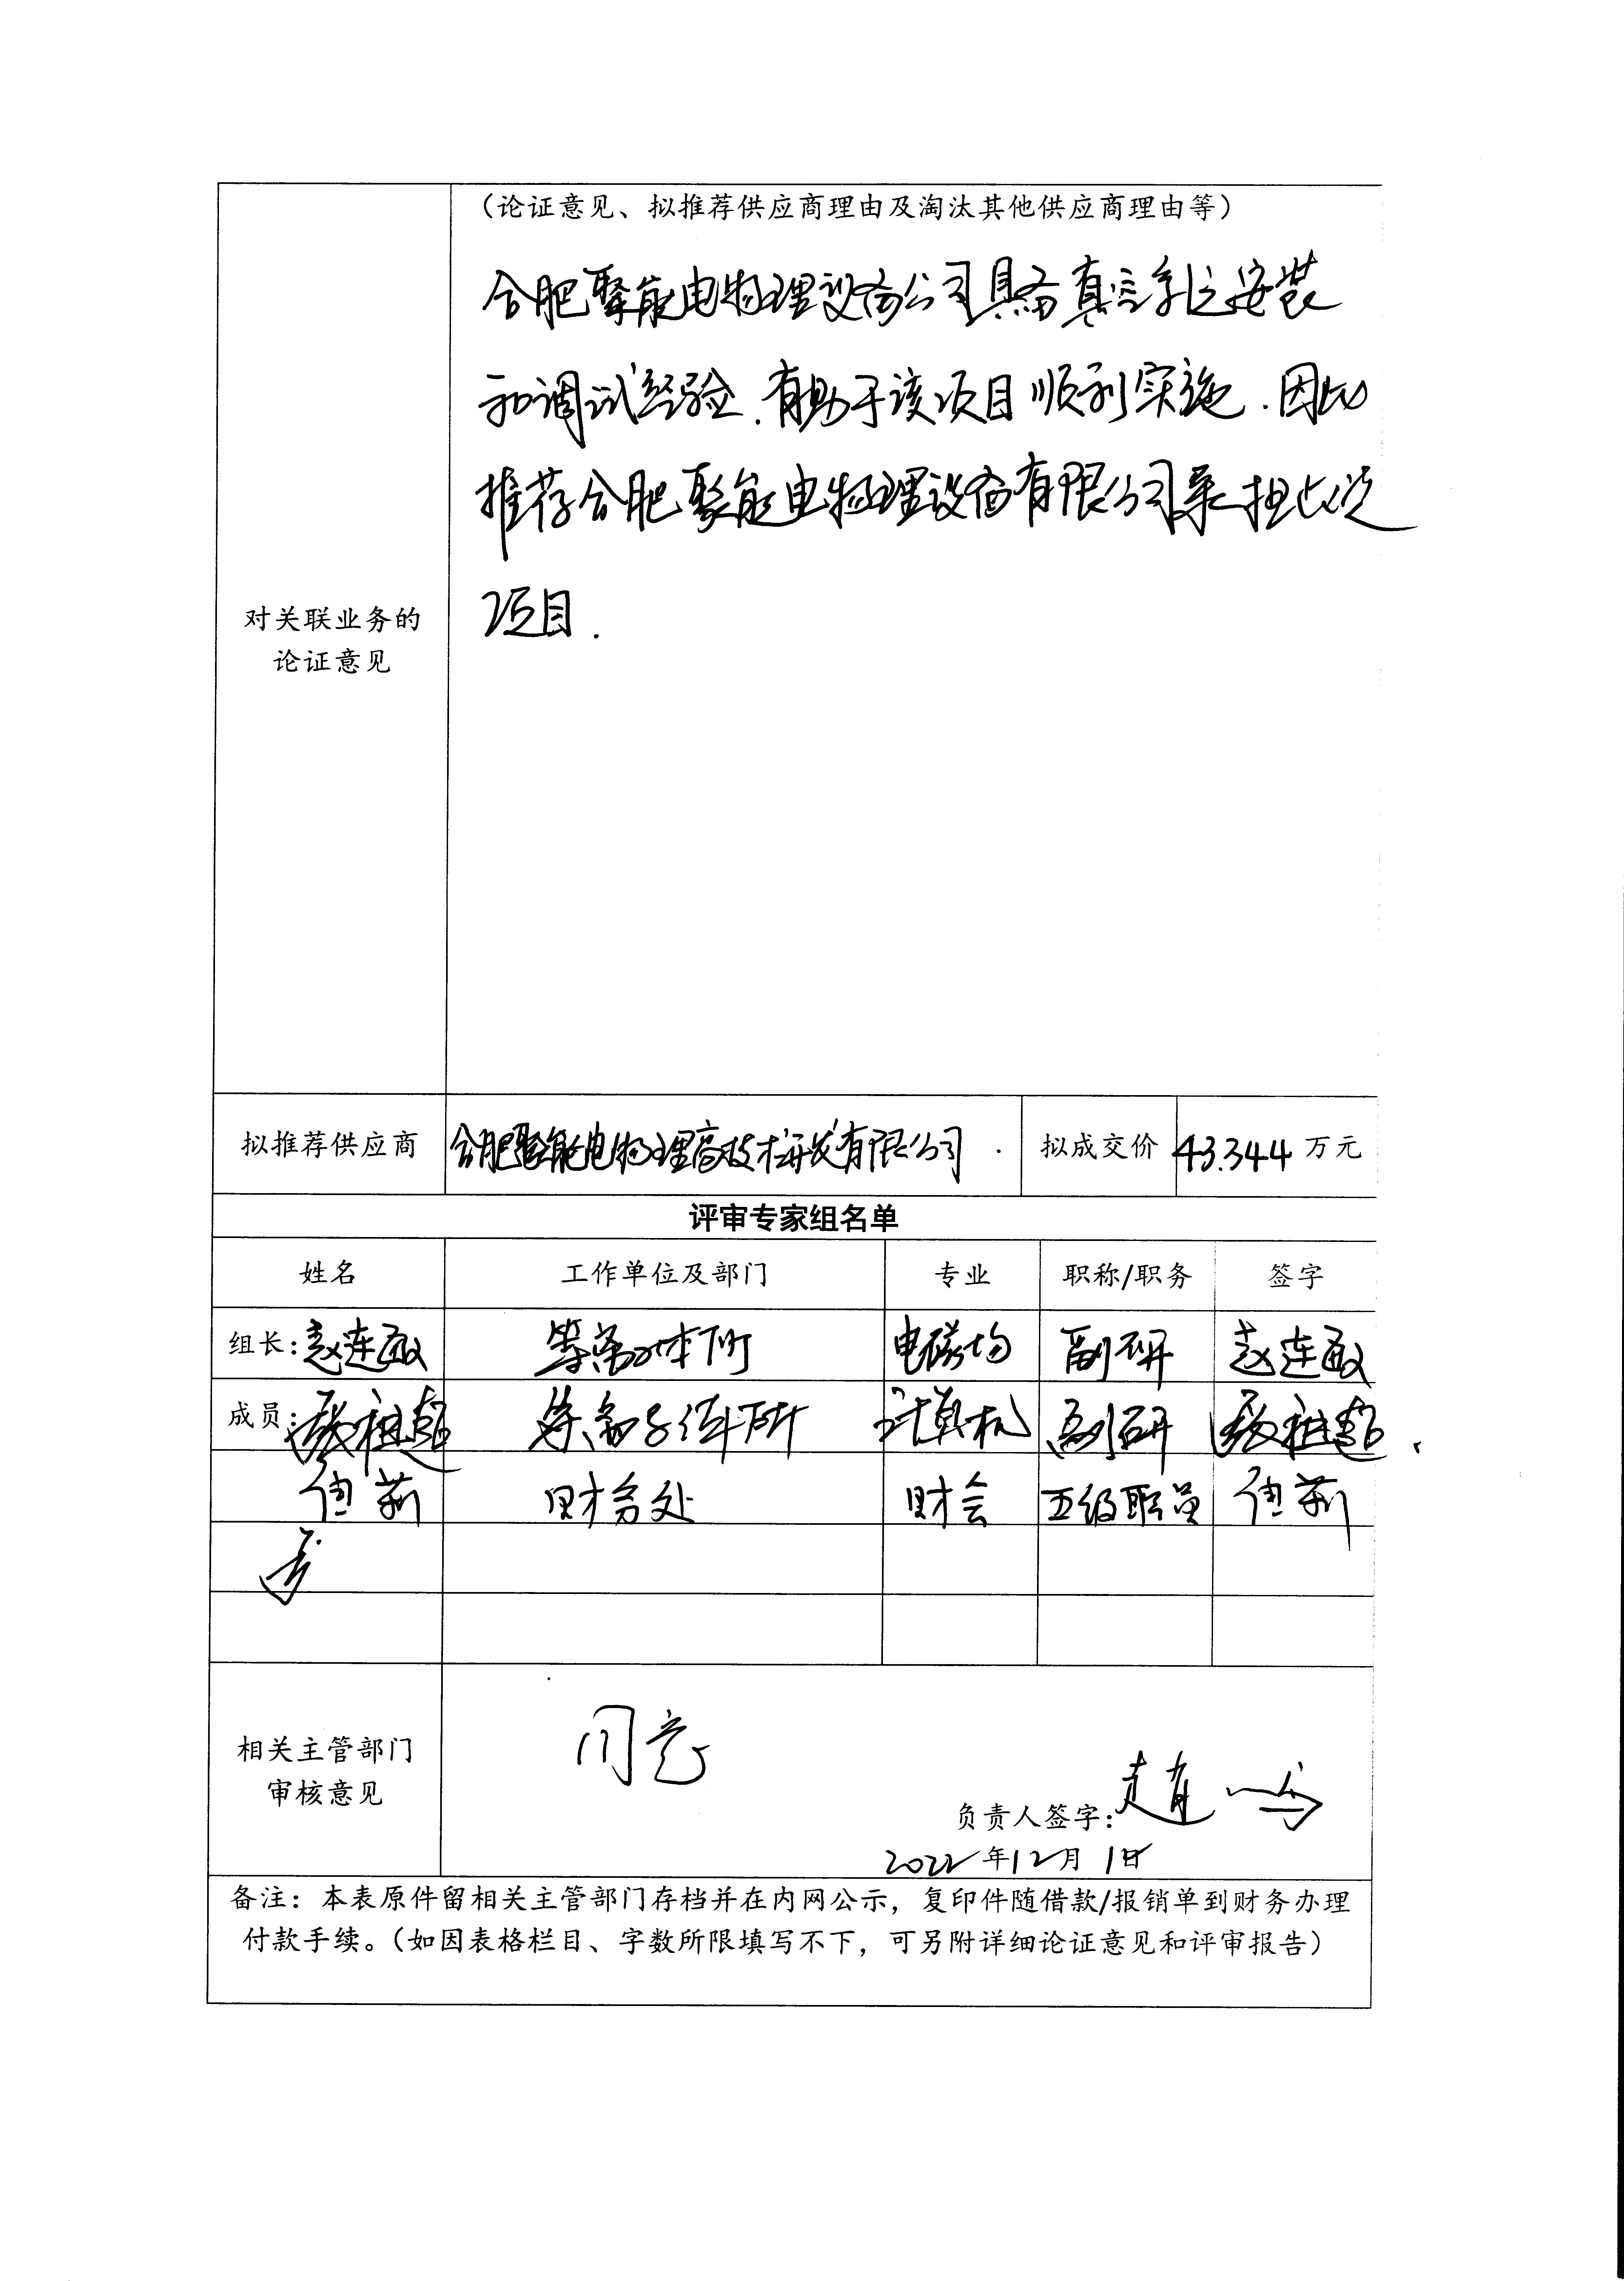 （论证意见、拟推荐供应商理由及淘汰其他供应商理由等）
合肥聚能电物理设备公司具备真空系统安装
和调试经验.有助于该项目顺利实施.因此
推荐合肥聚能电物理设备有限公司承担此次
项目.
对关联业务的
论证意见
拟推荐供应商 合肥聚能电物理高技术开发有限公司. 拟成交价 43.344 万元
评审专家组名单
姓名 工作单位及部门 专业 职称/职务 签字
组长: 赵连敏 等离子体所 电磁场 副研 赵连敏
成员: 张祖超 等离子体所 计算机 副研 张祖超
莉 财务处 财会 五级职员 莉
同意
相关主管部门
审核意见
负责人签字: 赵
2022年12月1日
备注：本表原件留相关主管部门存档并在内网公示，复印件随借款/报销单到财务办理
付款手续。（如因表格栏目、字数所限填写不下，可另附详细论证意见和评审报告）